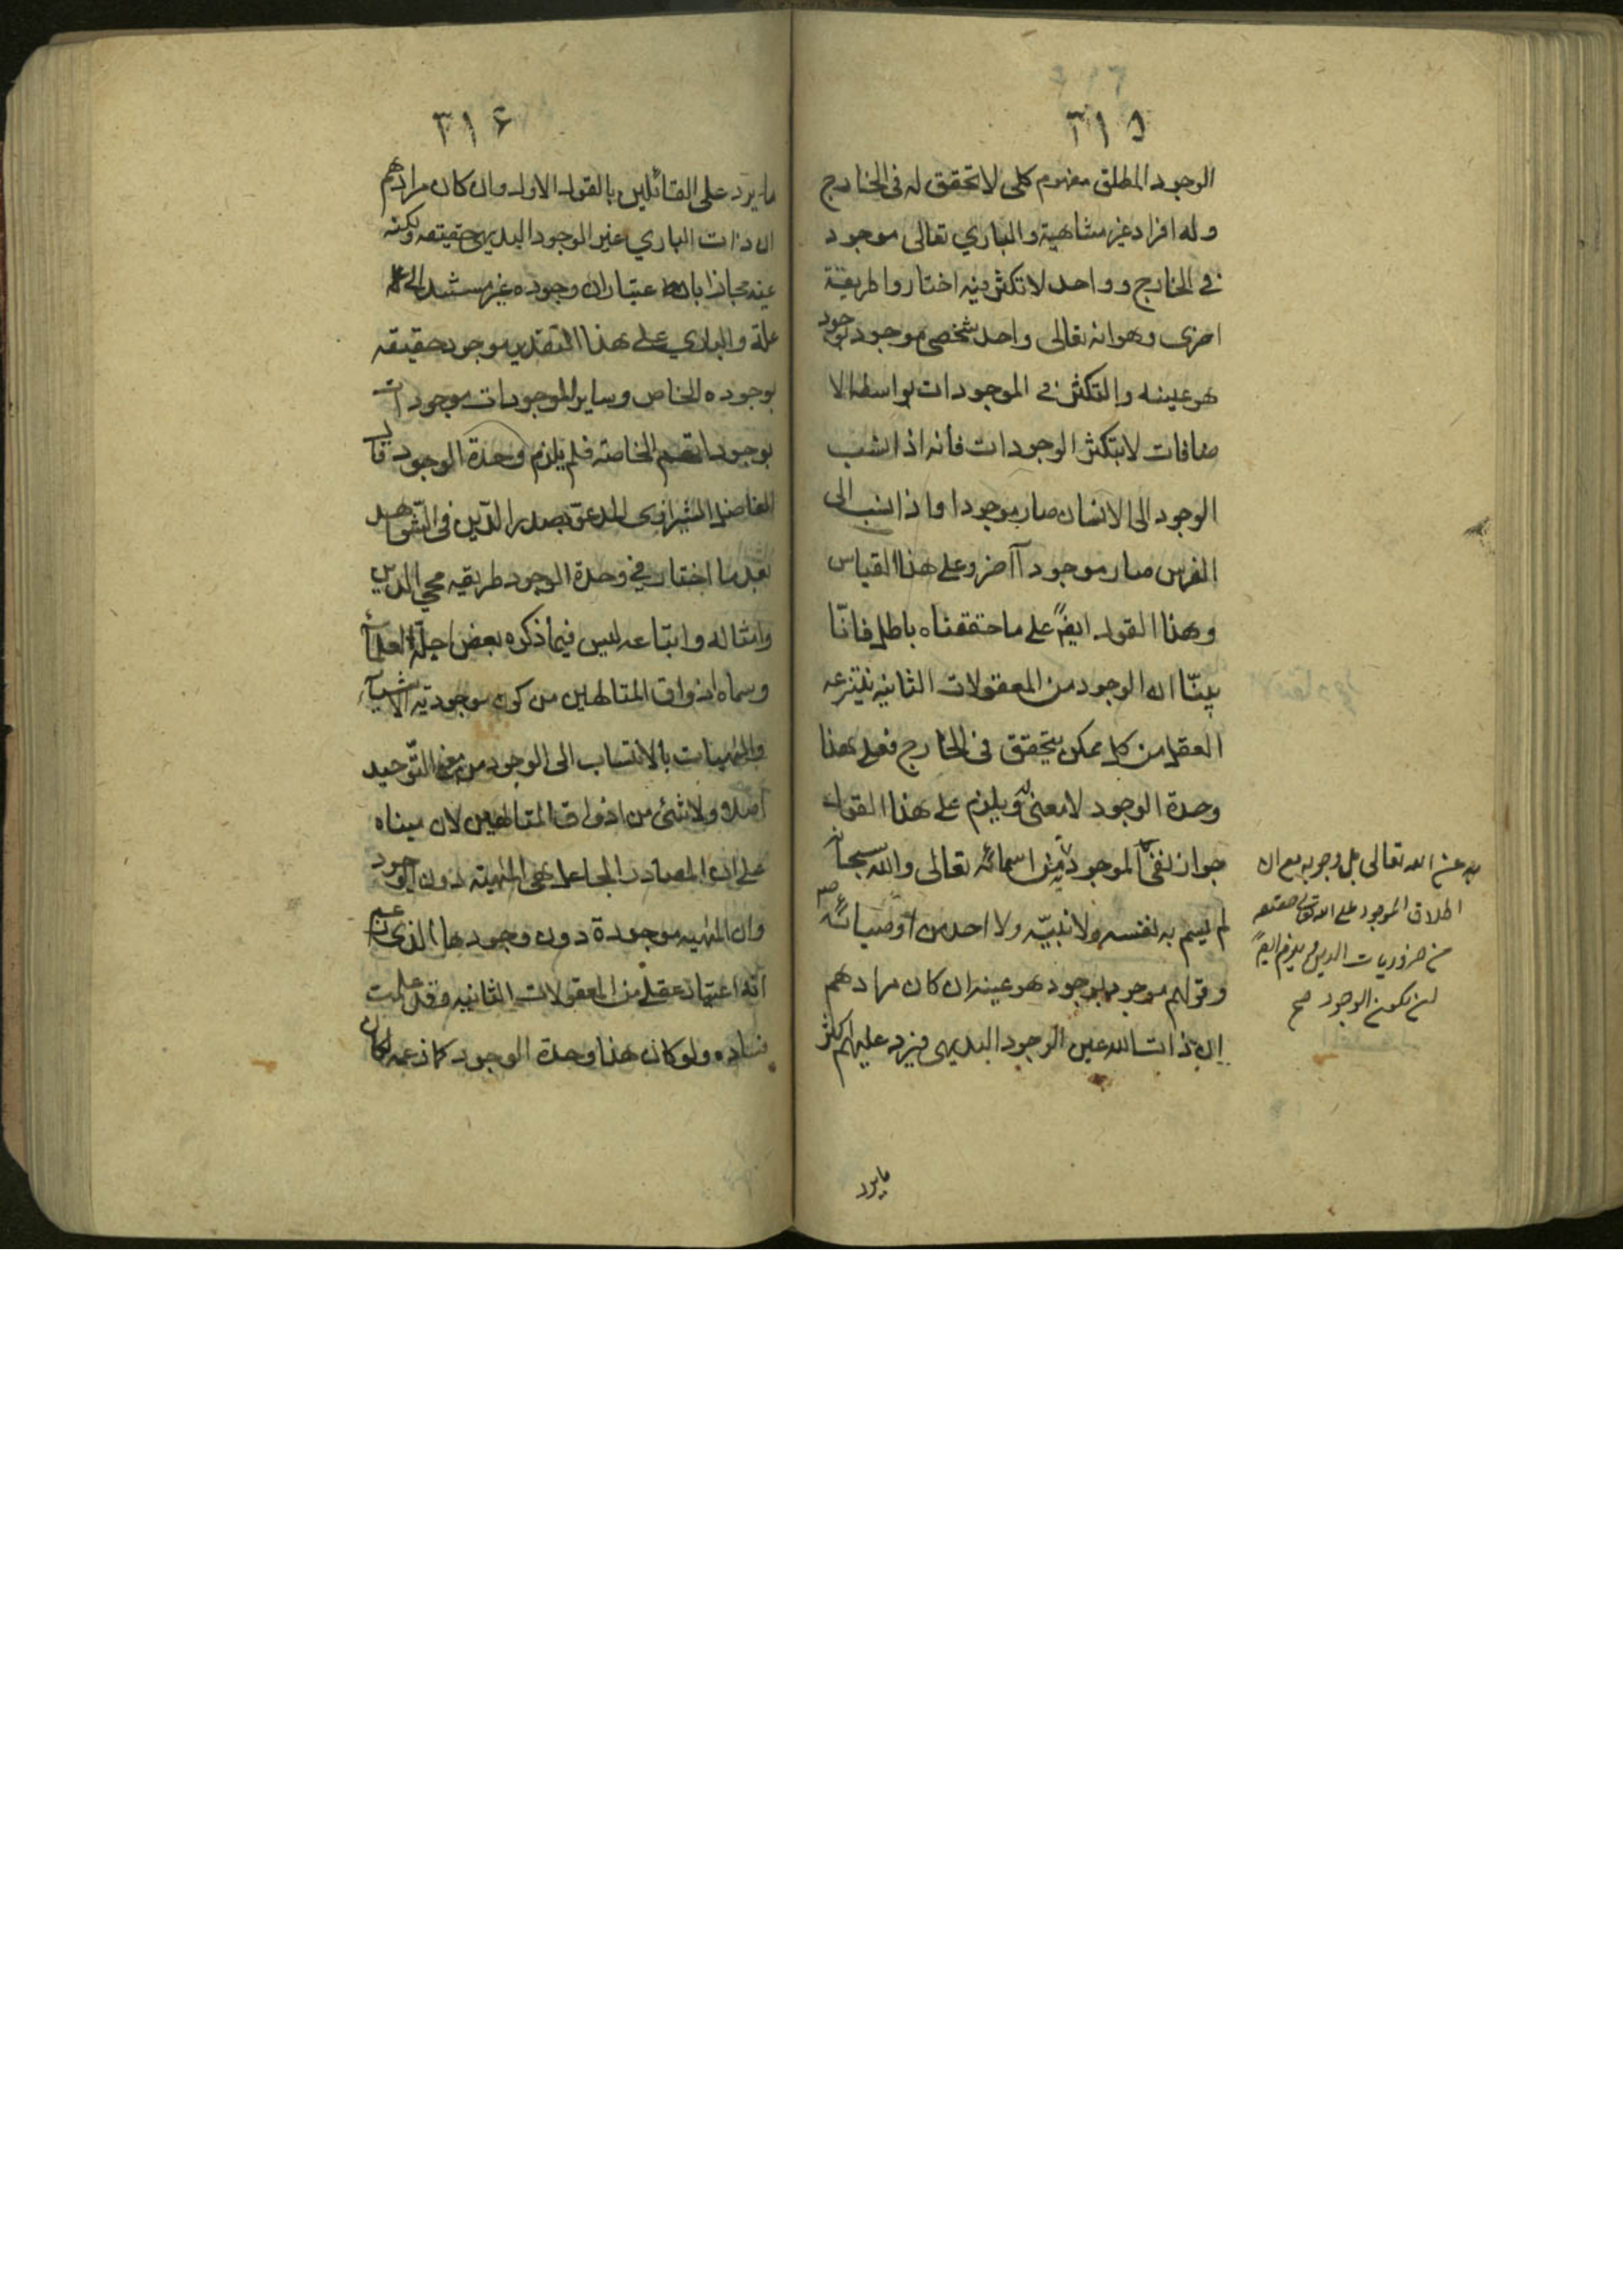 ٣١٥
الوجود المطلق مفهوم كلى لا تحقق له فى الخارج
وله افراد غير متناهية والبارى تعالى موجود
فى الخارج وواحد لا تكثر فيه اختاروا طريقة
اخرى وهو انه تعالى واحد شخصى موجود بوجود
هو عينه والتكثر فى الموجودات بواسطة الا
ضافات لا بتكثر الوجودات فانه اذا نسب
الوجود الى الانسان صار موجودا واذا نسب الى
الفرس صار موجوداً آخر وعلى هذا القياس
وهذا القول ايضً على ما حققناه باطل فانّا
بينّا ان الوجود من المعقولات الثانيه ينتزعه
العقل من كل ممكن يتحقق فى الخارج فعلى هذا
وحدة الوجود لا معنى له ويلزم على هذا القول
جواز نفى الموجودية من اسمائه تعالى والله سبحانه
لم يسم به نفسه ولا نبيّه ولا احد من اوصيائه
وقولهم موجود بوجود هو عينه ان كان مرادهم
ان ذات الله عين الوجود البديهى فيرد عليهم اكثر
عن الله تعالى بل وجوبه مع ان
اطلاق الموجود على الله تعالى حقيقه
من ضروريات الدين ويلزم ايضً
ان يكون الوجود صح
مايرد
٣١٦
ما يرد على القائلين بالقول الاول وان كان مرادهم
ان ذات البارى غير الوجود البديهى حقيقه ولكنه
عينه مجازا باعتبار ان وجوده غير مستند الى
علة والبارى على هذا التقدير موجود حقيقه
بوجوده الخاص وساير الموجودات موجودات
بوجوداتهم الخاصة فلم يلزم وحدة الوجود قال
الفاضل الشيرازى المدعو بصدر الدّين فى الشّواهد
بعد ما اختار فى وحدة الوجود طريقه محيى الدين
وامثاله واتباعه ليس فيما ذكره بعض اجلّة العلمآء
وسماه اذواق المتالهين من كون موجودية الاشيآء
والمهيات بالانتساب الى الوجود من التّوحيد
اصلا ولا شئ من اذواق المتالهين لان مبناه
على ان الصادر الجاعل هى المهية دون الوجود
وان المهيه موجودة دون وجودها الذى زعم
انه اعتبار عقلى من المعقولات الثانيه وقد علمت
فساده ولو كان هذا وحدة الوجود كما زعمه لكان